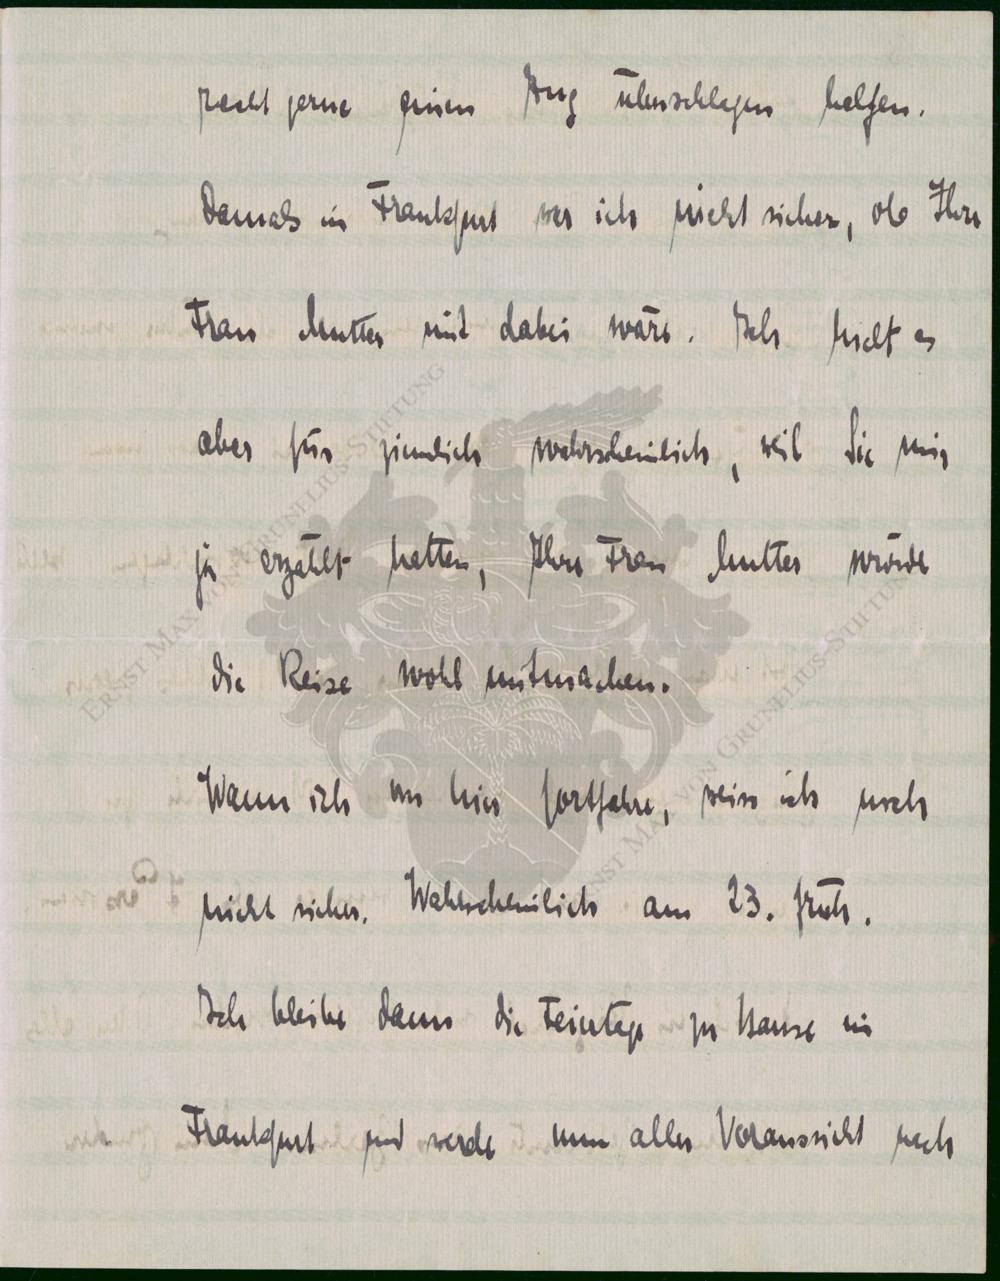 recht gerne einen Zug überschlagen helfen.
Damals in Frankfurt war ich nicht sicher, ob Ihre
Frau Mutter mit dabei wäre. Ich hielt es
aber für ziemlich wahrscheinlich, weil Sie mir
ja erzählt hatten, Ihre Frau Mutter würde
die Reise wohl mitmachen.
Wann ich von hier fortfahre, weiss ich noch
nicht sicher. Wahrscheinlich am 23. früh.
Ich bleibe dann die Feiertage zu Hause in
Frankfurt und werde nun aller Voraussicht nach
ERNST MAX VON GRUNELIUS-STIFTUNG
ERNST MAX VON GRUNELIUS-STIFTUNG